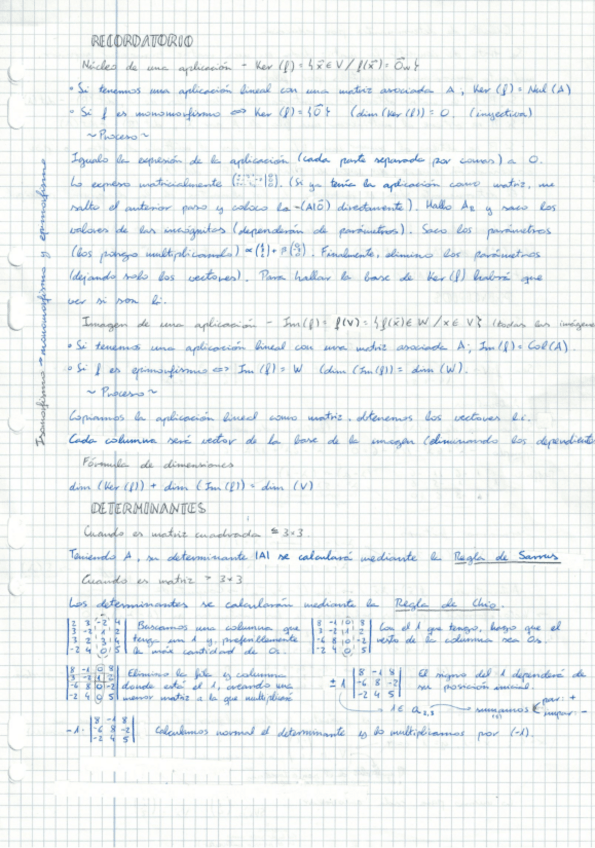 RECORDATORIO
Núcleo de una aplicación - Ker (f) = { x⃗ ∈ V / f(x⃗) = 0⃗w }
• Si tenemos una aplicación lineal con una matriz asociada A, Ker (f) = Nul (A)
• Si f es monomorfismo ⇔ Ker (f) = {0⃗} (dim (Ker (f)) = 0. (inyectiva)
~ Proceso ~
Igualo la expresión de la aplicación (cada parte separada por comas) a 0.
Lo expreso matricialmente. (Si ya tenía la aplicación como matriz, me
salto el anterior paso y coloco la (A|0⃗) directamente). Hallo y saco los
valores de las incógnitas (dependerán de parámetros). Saco los parámetros
(los pongo multiplicando). Finalmente, elimino los parámetros
(dejando solo los vectores). Para hallar la base de Ker (f) habrá que
ver si son l.i.
Isomorfismo → monomorfismo y epimorfismo
Imagen de una aplicación - Im (f) = f(V) = { f(x⃗) ∈ W / x ∈ V } (todas las imágene
• Si tenemos una aplicación lineal con una matriz asociada A; Im (f) = Col (A).
• Si f es epimorfismo ⇔ Im (f) = W (dim (Im (f)) = dim (W).
~ Proceso ~
Copiamos la aplicación lineal como matriz. Obtenemos los vectores l.i.
Cada columna será vector de la base de la imagen (eliminando los dependiente
Fórmula de dimensiones
dim (Ker (f)) + dim (Im (f)) = dim (V)
DETERMINANTES
Cuando es matriz cuadrada ≤ 3×3
Teniendo A, su determinante |A| se calculará mediante la Regla de Sarrus
Cuando es matriz > 3×3
Los determinantes se calcularán mediante la Regla de Chio.
Buscamos una columna que
tenga un 1 y, preferiblemente
la más cantidad de 0s.
Con el 1 que tengo, hago que el
resto de la columna sea 0s.
8 -1 0 8
3 -2 1 2
-6 8 0 -2
-2 4 0 5
Elimino la fila y columna
donde está el 1, creando una
menor matriz a la que multiplicará
± 1 · | 8 -1 8 |
| -6 8 -2 |
| -2 4 5 |
El signo del 1 dependerá de
su posición inicial
1 ∈ a2,3 → sumamos par: +
impar: -
-1 · | 8 -1 8 |
| -6 8 -2 |
| -2 4 5 |
Calculamos normal el determinante y lo multiplicamos por (-1).